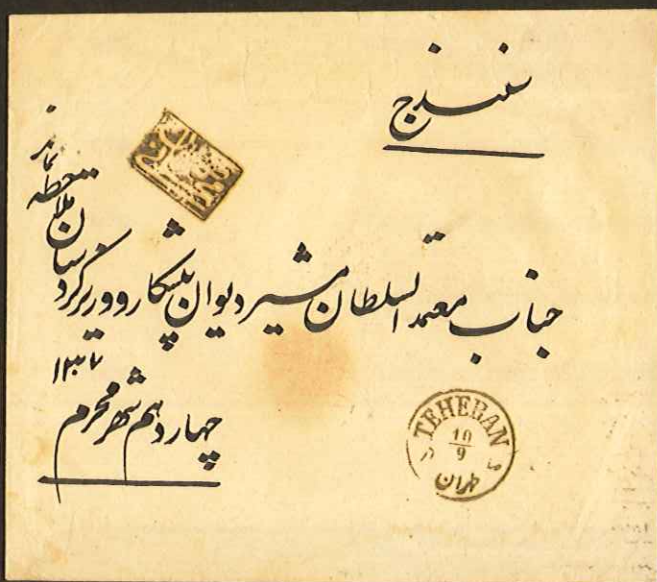 سنندج
جناب معتمد السلطان مشیر دیوان پیشکار و وزیر کردستان ملاحظه نمایند
چهاردهم شهر محرم
TEHERAN
10
9
طهران